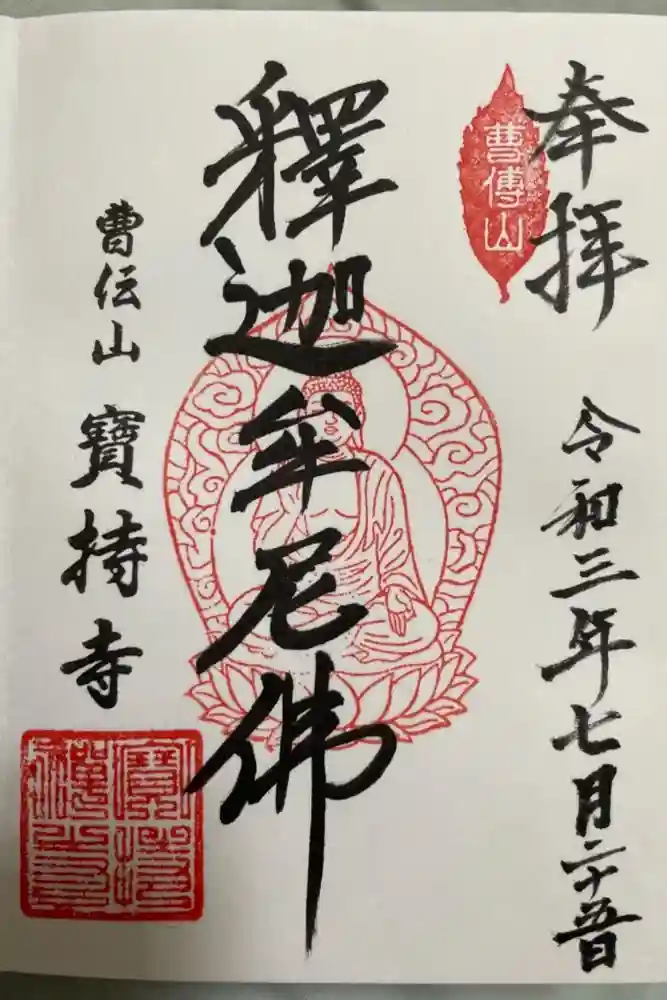 奉拝
曹傳山
令和三年七月二十五日
釋迦牟尼佛
曹伝山 寶持寺